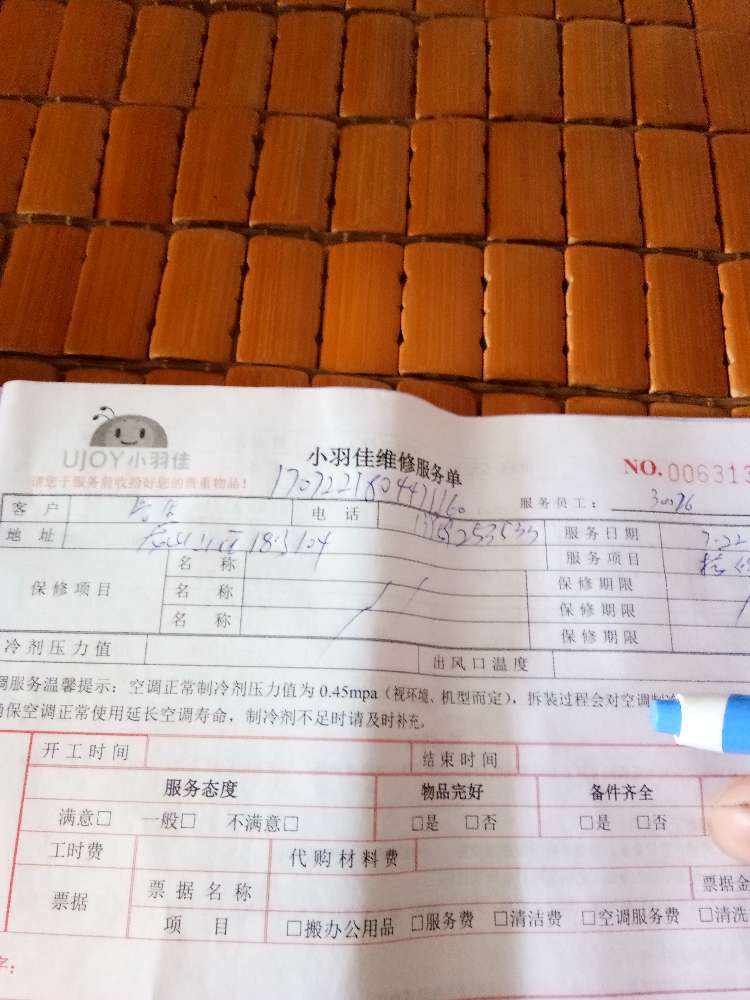 UJOY小羽佳
小羽佳维修服务单
NO. 006313
请您于服务前收拾好您的贵重物品!
170722180447160
服务员工: 30076
客户 电话 服务日期 7.22
地址 服务项目
保修项目 名称 保修期限
名称 保修期限
名称 保修期限
冷剂压力值 出风口温度
调服务温馨提示:空调正常制冷剂压力值为 0.45mpa(视环境、机型而定),拆装过程会对空调制
确保空调正常使用延长空调寿命,制冷剂不足时请及时补充。
开工时间 结束时间
服务态度 物品完好 备件齐全
满意□ 一般□ 不满意□ □是 □否 □是 □否
工时费 代购材料费
票据 票据名称 票据金
项目 □搬办公用品 □服务费 □清洁费 □空调服务费 □清洗
字: